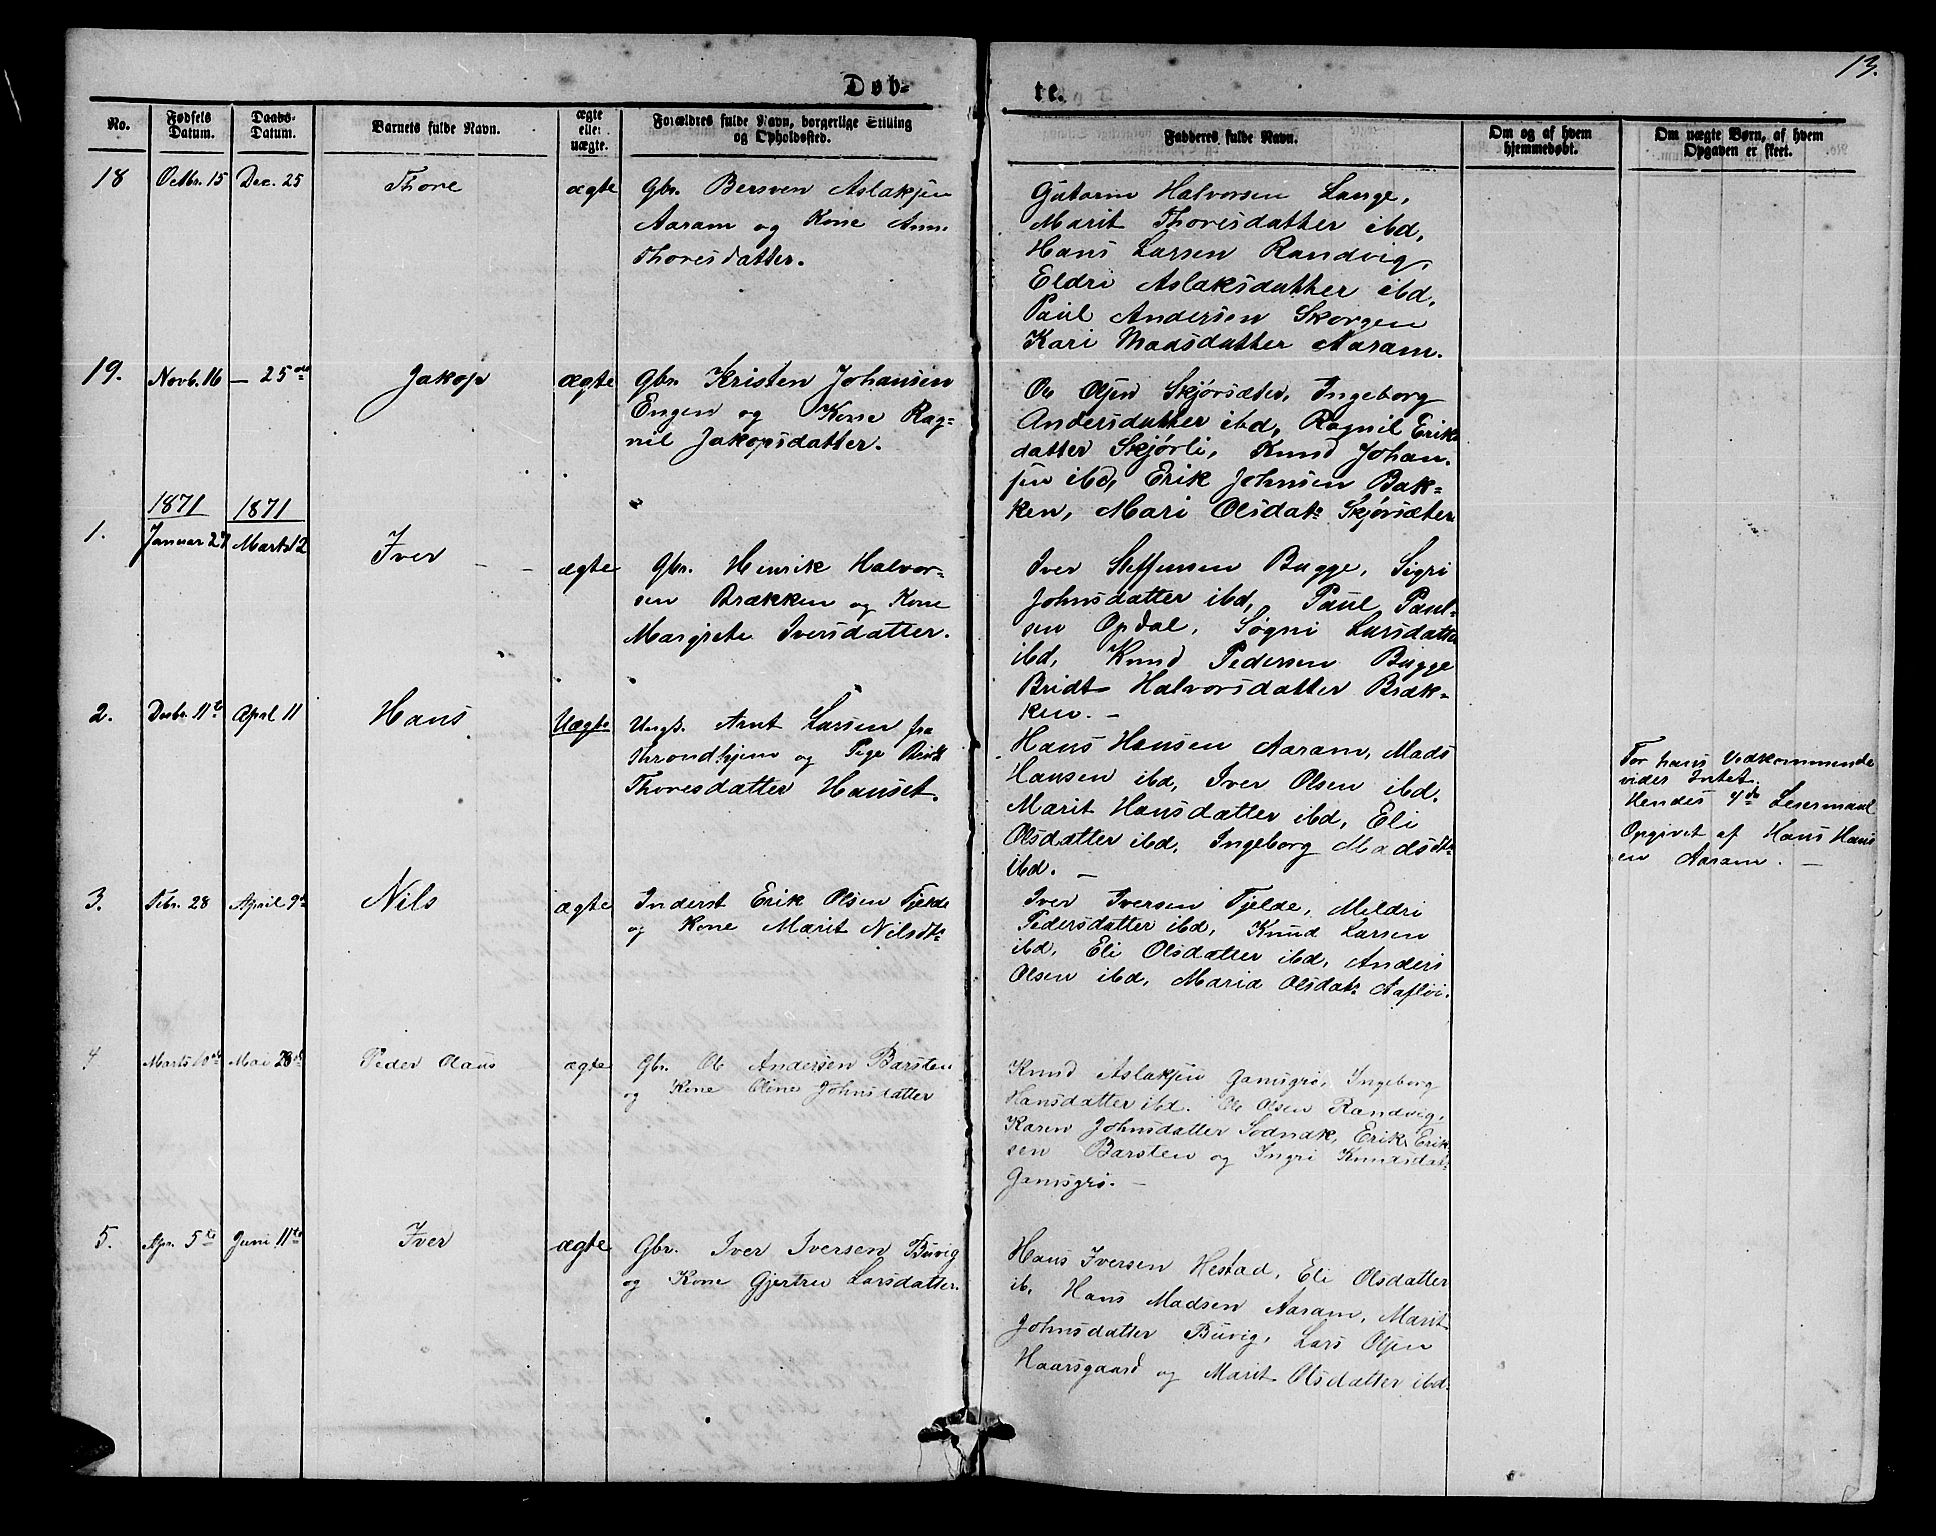 13.
Døb-
te.
No.
Fødsels Datum.
Daabs- Datum.
Barnets fulde Navn.
ægte eller uægte.
Forældres fulde Navn, borgerlige Stilling og Opholdssted.
Fadderes fulde Navn.
Om og af hvem hjemmedøbt.
Om uægte Børn, af hvem Opgaven er skeet.
18 Octbr. 15 Dec. 25 Thore ægte
Gbr. Bersven Aslaksen
Aaram og Kone Ann
Thoresdatter.
Gutorm Halvorsen Lange,
Marit Thoresdatter ibd,
Hans Larsen Randvig,
Eldri Aslaksdatter ibd,
Paul Andersen Skorgen
Kari Madsdatter Aaram.
19. Novb. 16 — 25de Jakop ægte
Gbr. Kristen Johansen
Engen og Kone Rag-
nil Jakopsdatter.
Ole Olsen Skjørsæter, Ingeborg
Andersdatter ibd, Ragnil Eriks
datter Skjørli, Knud Johan-
sen ibd, Erik Johnsen Bak-
ken, Mari Olsdatr Skjørsæter
1871 1871
1. Januar 27 Marts 12 Iver ægte
Gbr. Henrik Halvor-
sen Brækken og Kone
Margrete Iversdatter.
Iver Steffensen Bugge, Sigri
Johnsdatter ibd, Paul Paul-
sen Opdal, Søgni Larsdatter
ibd, Knud Pedersen Bugge
Bridt Halvorsdatter Bræk-
ken. —
2. Decbr. 11te April 11 Hans Uægte
Ungk. Arnt Larsen fra
Throndhjem og Pige Brit
Thoresdatter Hanset.
Hans Hansen Aaram, Mads
Hansen ibd, Iver Olsen ibd.
Marit Hansdatter ibd, Eli
Olsdatter ibd, Ingeborg Madsdtr
ibd. —
For hans Vedkommende
vides Intet.
Hendes 4de Leiermaal
Opgivet af Hans Hans
en Aaram. —
3. Febr. 28 April 9de Nils ægte
Inderst Erik Olsen Fjelde
og Kone Marit Nilsdtr
Iver Iversen Fjelde, Meldri
Pedersdatter ibd, Knud Larsen
ibd, Eli Olsdatter ibd, Anders
Olsen ibd, Maria Olsdatr
4 Marts 10de Mai 28de Peder Olaus ægte
Gbr. Ole Andersen Barsten
og Kone Oline Johnsdatter
Knud Aslaksen Jamsgrø, Ingeborg
Hansdatter ibd. Ole Olsen Randvig,
Karen Johnsdatter Sødnak, Erik Erik
sen Barsten og Ingri Knudsdatr
Jamsgrø. —
5. Apr. 5te Juni 11te Iver ægte
Gbr. Iver Iversen Buvig
og Kone Gjertru Larsdatter.
Hans Iversen Hestad, Eli Olsdatter
ib, Hans Madsen Aaram, Marit
Johnsdatter Buvig, Lars Olsen
Haarsgaard og Marit Olsdatter ibd.